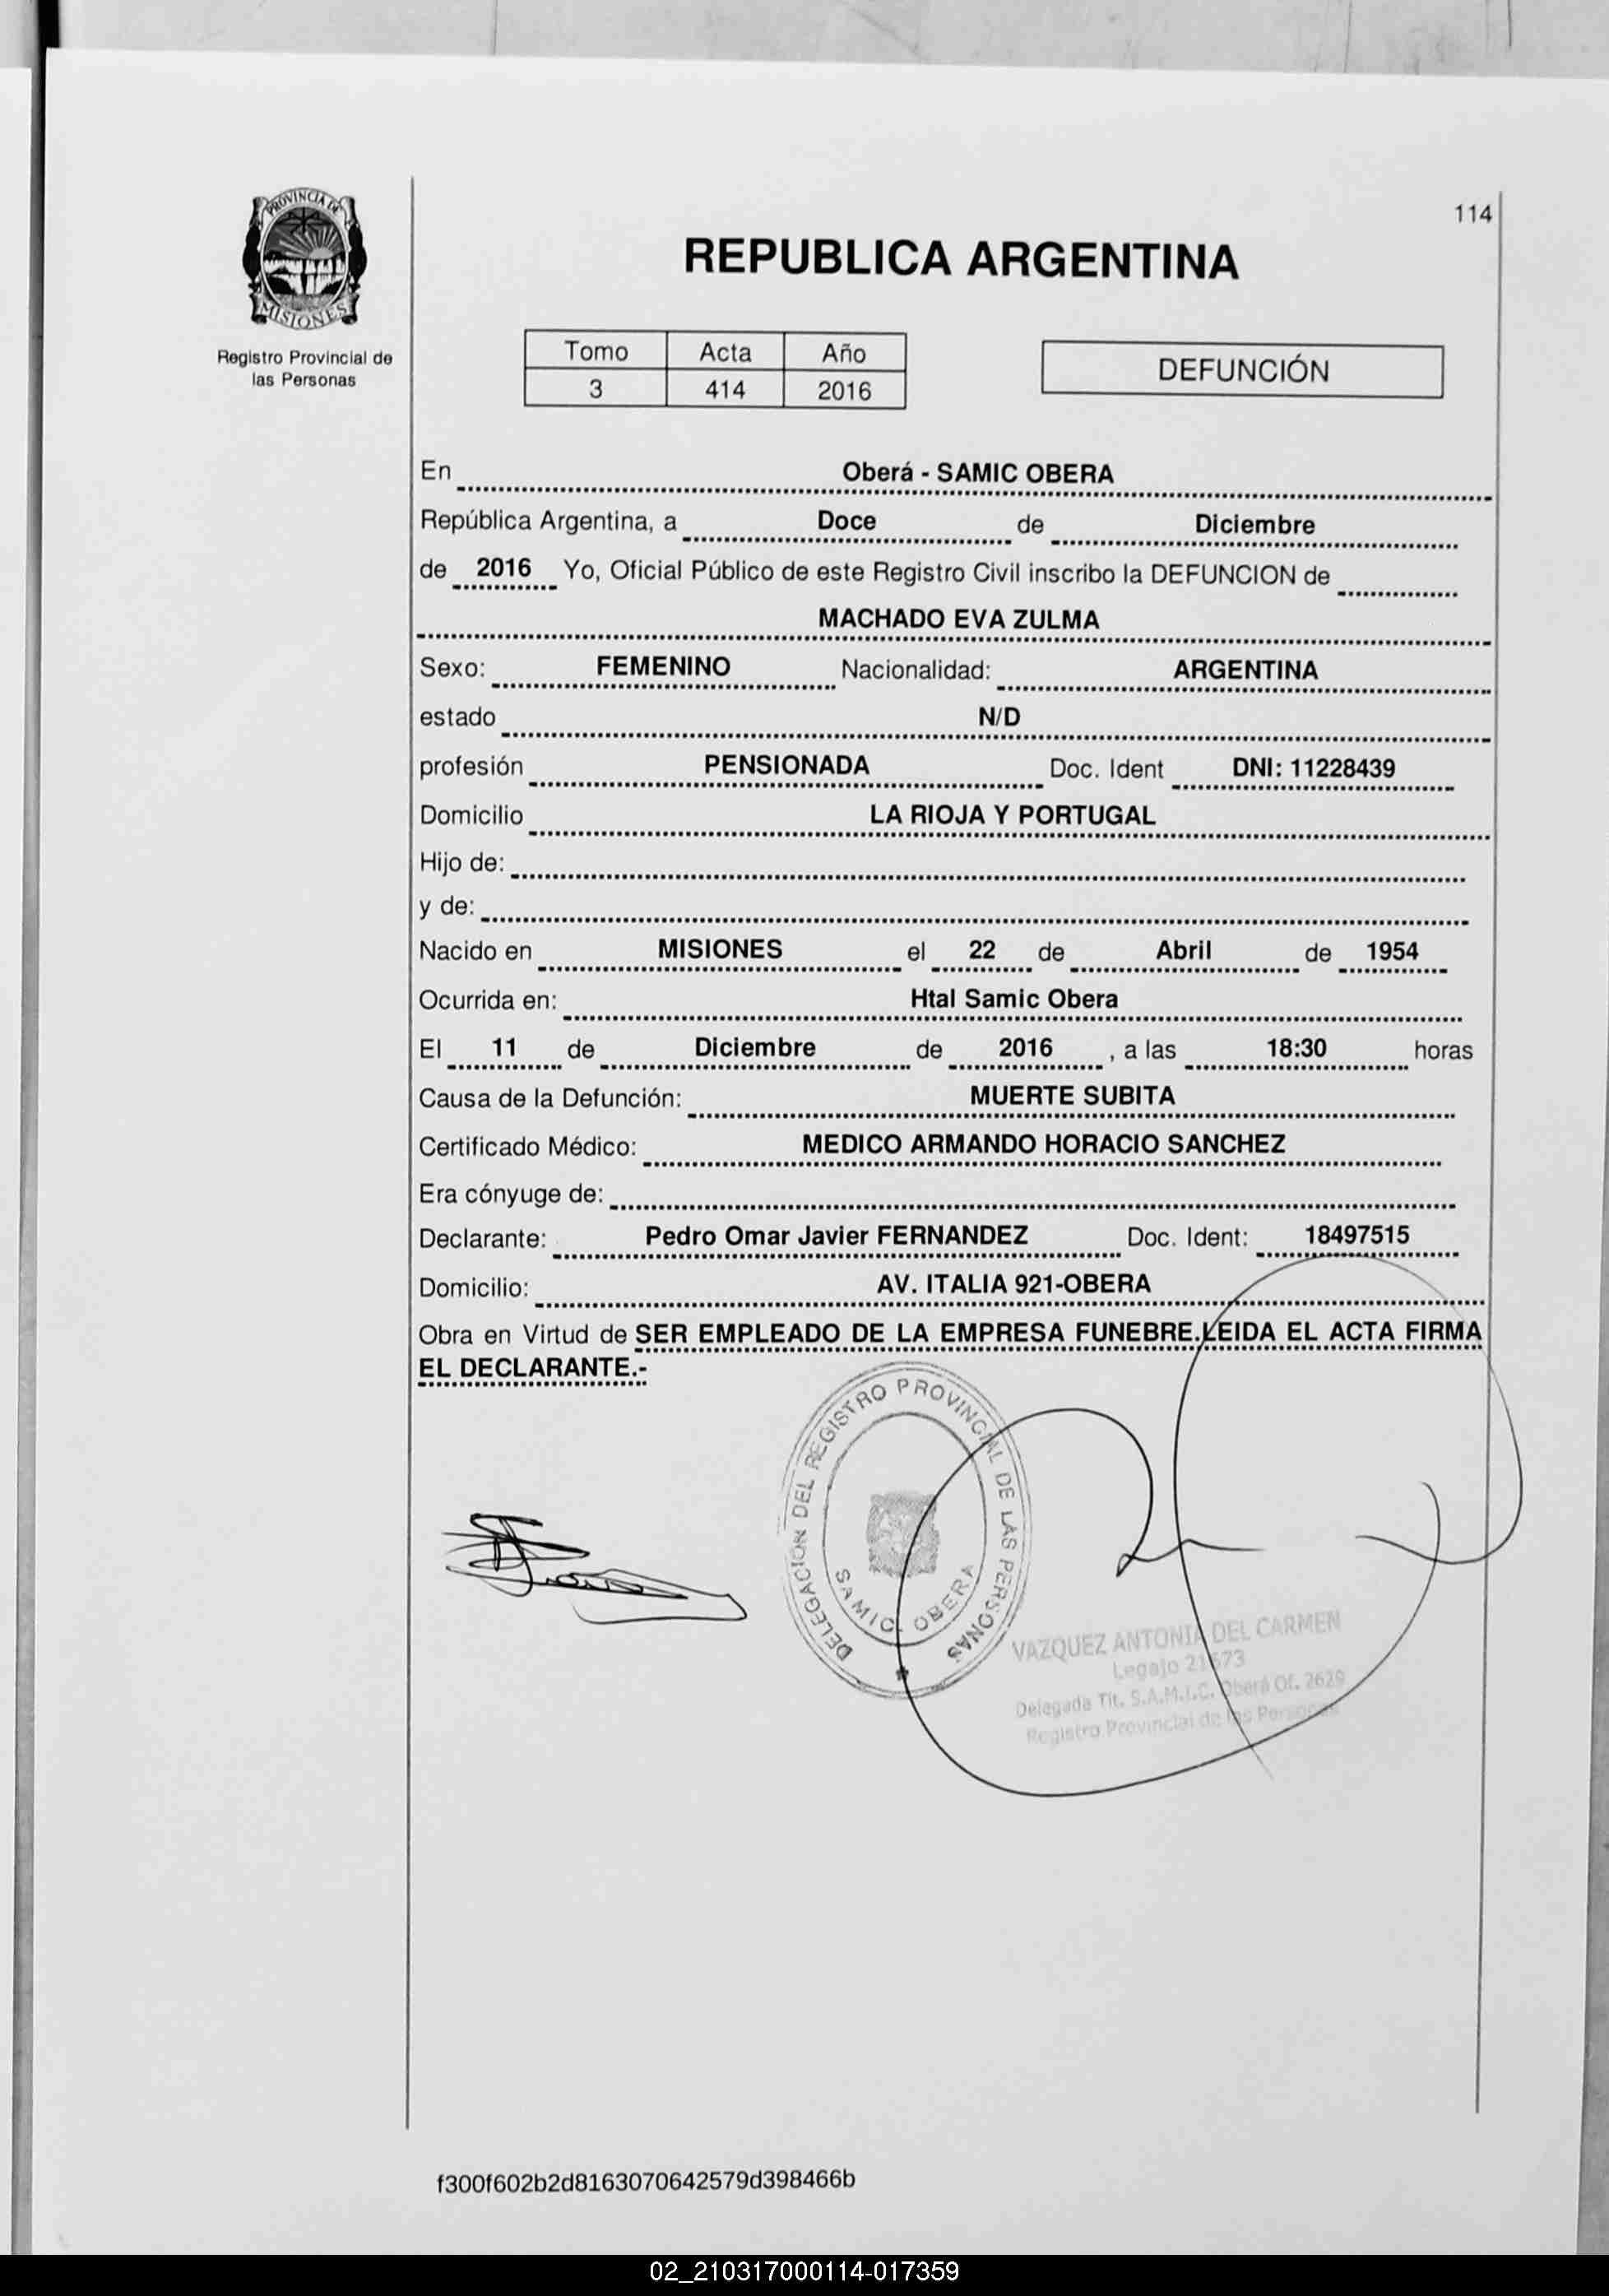 114
PROVINCIA DE
MISIONES
Registro Provincial de
las Personas
REPUBLICA ARGENTINA
Tomo Acta Año
3 414 2016
DEFUNCIÓN
En Oberá - SAMIC OBERA
República Argentina, a Doce de Diciembre
de 2016 Yo, Oficial Público de este Registro Civil inscribo la DEFUNCION de
MACHADO EVA ZULMA
Sexo: FEMENINO Nacionalidad: ARGENTINA
estado N/D
profesión PENSIONADA Doc. Ident DNI: 11228439
Domicilio LA RIOJA Y PORTUGAL
Hijo de:
y de:
Nacido en MISIONES el 22 de Abril de 1954
Ocurrida en: Htal Samic Obera
El 11 de Diciembre de 2016 , a las 18:30 horas
Causa de la Defunción: MUERTE SUBITA
Certificado Médico: MEDICO ARMANDO HORACIO SANCHEZ
Era cónyuge de:
Declarante: Pedro Omar Javier FERNANDEZ Doc. Ident: 18497515
Domicilio: AV. ITALIA 921-OBERA
Obra en Virtud de SER EMPLEADO DE LA EMPRESA FUNEBRE.LEIDA EL ACTA FIRMA
EL DECLARANTE.-
DELEGACION DEL REGISTRO PROVINCIAL DE LAS PERSONAS
SAMIC OBERA
VAZQUEZ ANTONIA DEL CARMEN
Legajo 21673
Delegada Tit. S.A.M.I.C. Oberá Of. 2629
Registro Provincial de las Personas
f300f602b2d8163070642579d398466b
02_210317000114-017359